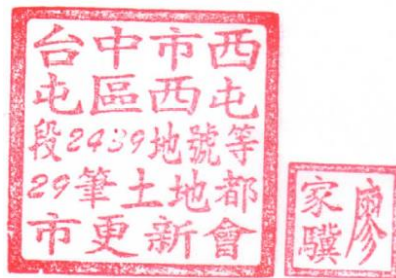 台中市西
屯區西屯
段2439地號等
29筆土地都
市更新會
廖家驥